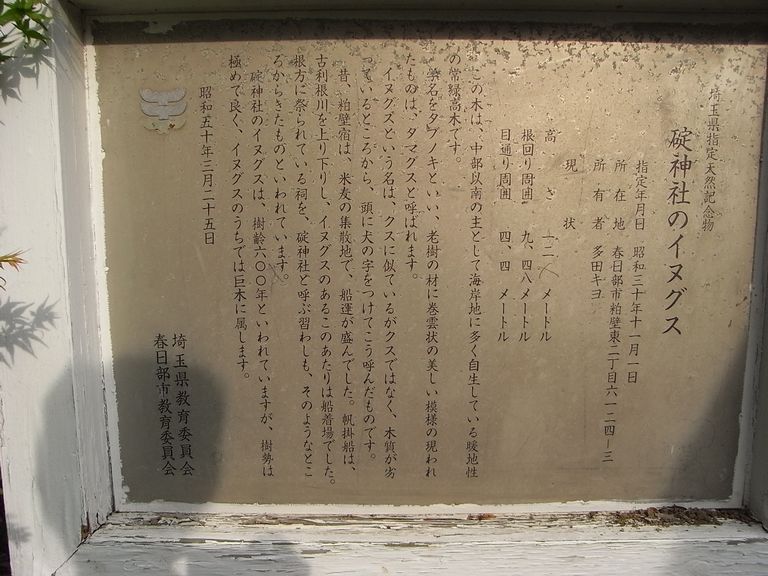 埼玉県指定天然記念物
碇神社のイヌグス
指定年月日 昭和三十年十一月一日
所在地 春日部市粕壁東二丁目六一二四ー三
所有者 多田キヨ
現状
高さ 一二 メートル
根回り周囲 九、四八メートル
目通り周囲 四、四 メートル
この木は、中部以南の主として海岸地に多く自生している暖地性
の常緑高木です。
学名をタブノキといい、老樹の材に巻雲状の美しい模様の現われ
たものは、タマグスと呼ばれます。
イヌグスという名は、クスに似ているがクスではなく、木質が劣
っているところから、頭に犬の字をつけてこう呼んだものです。
昔、粕壁宿は、米麦の集散地で、船運が盛んでした。帆掛船は、
古利根川を上り下りし、イヌグスのあるこのあたりは船着場でした。
根方に祭られている祠を、碇神社と呼ぶ習わしも、そのようなとこ
ろからきたものといわれています。
碇神社のイヌグスは、樹齢六〇〇年といわれていますが、樹勢は
極めて良く、イヌグスのうちでは巨木に属します。
昭和五十年三月二十五日
埼玉県教育委員会
春日部市教育委員会